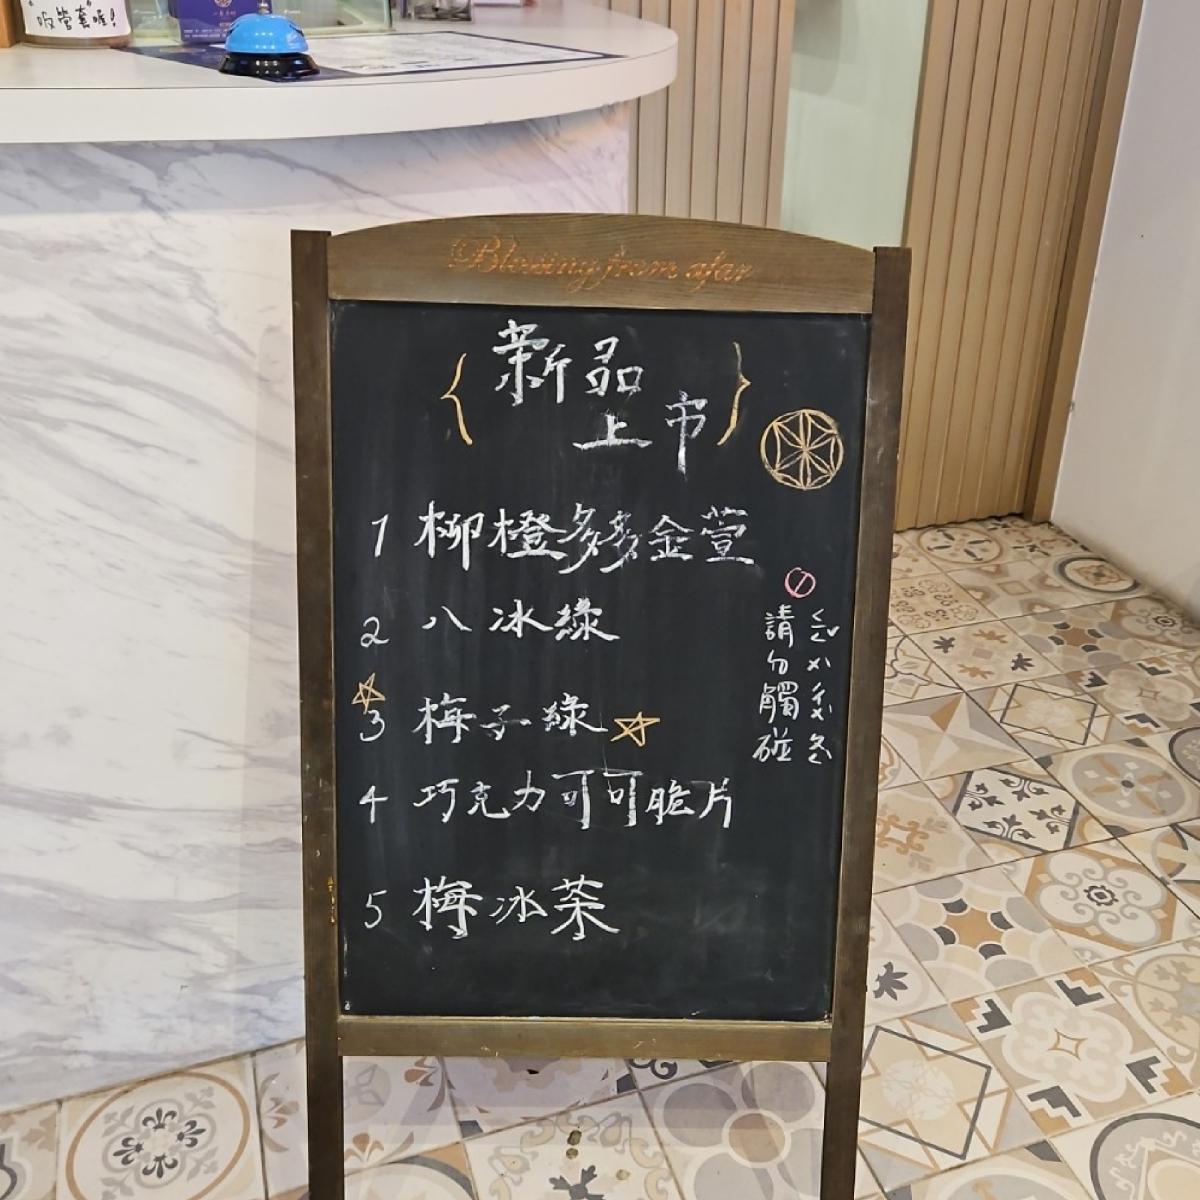 吸管套喔!
Blessing from afar
新品
上市
1 柳橙多多金萱
2 八冰綠
3 梅子綠
4 巧克力可可脆片
5 梅冰茶
請勿觸碰